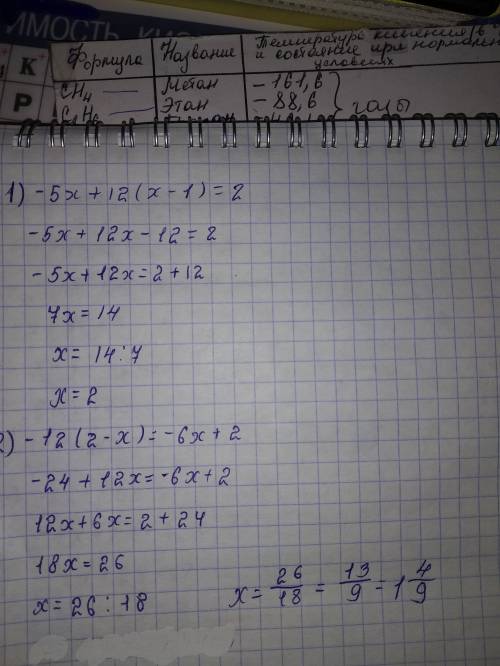 МОСТЬ
К
Р
Формула Название Температура кипения (в
и состояние при нормальн
условиях
CH4 — Метан – 161,6
C2H6 Этан – 88,6 } газы
1) -5x+12(x-1)=2
-5x+12x-12=2
-5x+12x=2+12
7x=14
x=14:7
x=2
2) -12(2-x)=-6x+2
-24+12x=-6x+2
12x+6x=2+24
18x=26
x=26:18 x=26/18=13/9=1 4/9